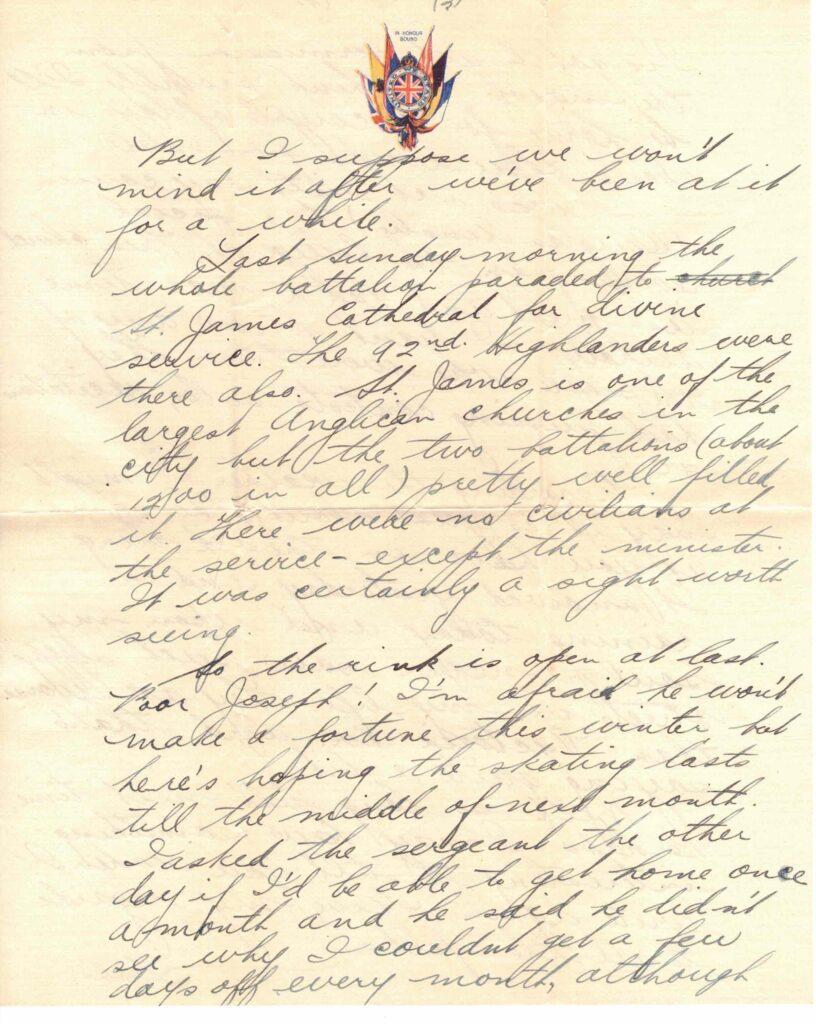 (3)
IN HONOUR
BOUND
But I suppose we won't
mind it after we've been at it
for a while.
Last Sunday morning the
whole battalion paraded to church
St. James Cathedral for divine
service. The 92nd. Highlanders were
there also. St. James is one of the
largest Anglican churches in the
city but the two battalions (about
1200 in all) pretty well filled
it. There were no civilians at
the service - except the minister.
It was certainly a sight worth
seeing.
So the rink is open at last.
Poor Joseph! I'm afraid he won't
make a fortune this winter but
here's hoping the skating lasts
till the middle of next month.
I asked the sergeant the other
day if I'd be able to get home once
a month and he said he didn't
see why I couldn't get a few
days off every month, although